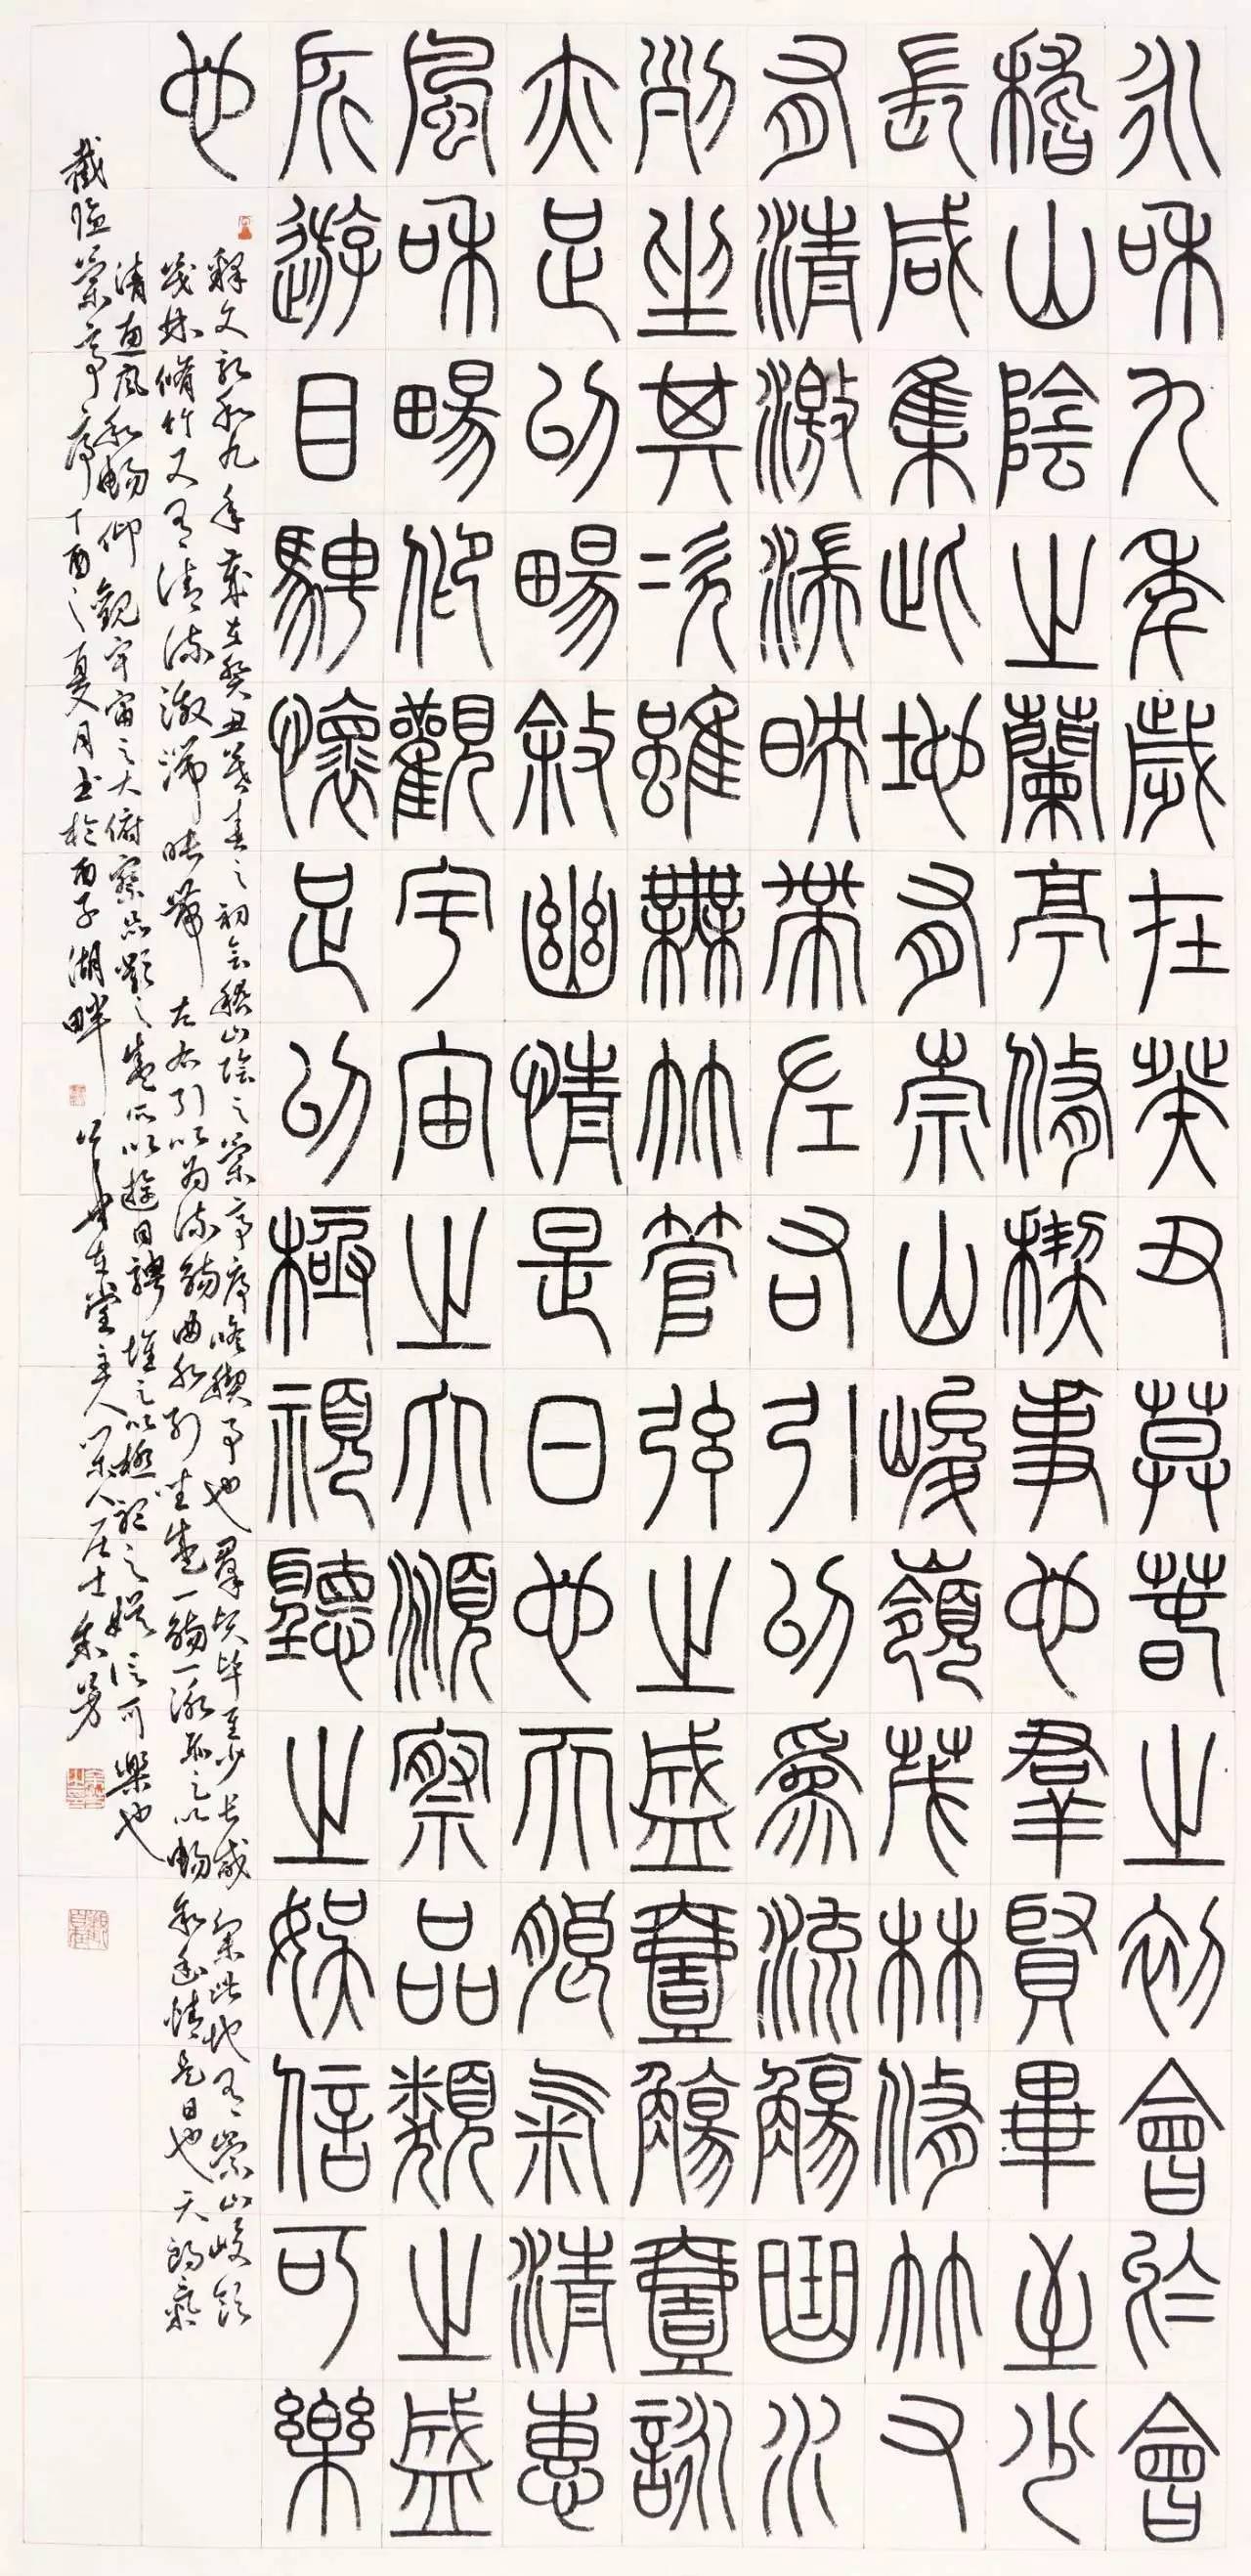 永和九年歲在癸丑莫春之初會於會
稽山陰之蘭亭脩禊事也羣賢畢至少
長咸集此地有崇山峻嶺茂林脩竹又
有清激湍映帶左右引以為流觴曲水
列坐其次雖無竹管弦之盛壹觴壹詠
亦足以暢敘幽情是日也天朗氣清惠
風和暢仰觀宇宙之大頫察品類之盛
所遊目騁懷足以極視聽之娛信可樂
也
釋文永和九年歲在癸丑暮春之初會稽山陰之蘭亭序脩禊事也羣賢畢至少長咸集此地有崇山峻領
茂林脩竹又有清流激湍映帶左右引以為流觴曲水列坐盛一觴一詠以暢敘幽情是日也天朗氣
清惠風和暢仰觀宇宙之大俯察品類之盛所以遊目騁懷之以極視之娛信可樂也
截臨蘭亭序丁酉之夏月書於西子湖畔 堂主人 居士